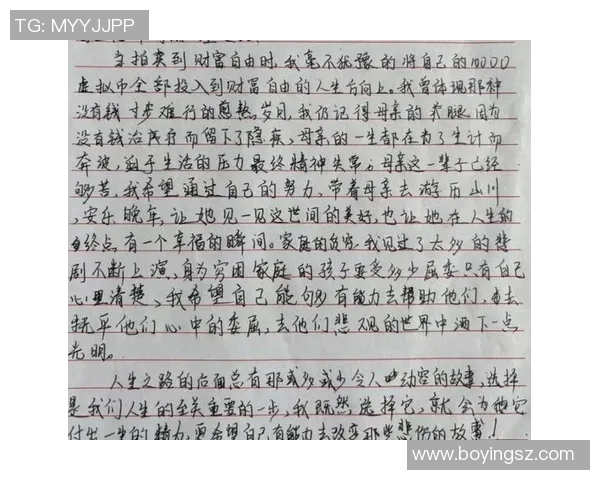 TG: MYYJJPP
当拍卖到财富自由时,我毫不犹豫的将自己的10000
虚拟币全部投入到财富自由的人生方向上。我曾体现那种
没有钱寸步难行的煎熬岁月,我仍记得母亲的 腿因为
没有钱治疗而留下了隐疾,母亲的一生都在为了生计而
奔波,迫于生活的压力最终精神失常。母亲这一辈子已经
够苦,我希望通过自己的努力,带着母亲去游历山川
,安乐晚年,让她见一见这世间的美好,也让她在人生的
终点有一个幸福的瞬间。家庭的贫穷,我见过了太多的悲
剧不断上演,身为穷困家庭的孩子要受多少屈委只有自己
心里清楚,我希望自己能够有能力去帮助他们,去
抚平他们心中的委屈,去他们悲观的世界中洒下一点
光明。
人生之路的后面总有那或多或少令人动容的故事,选择
是我们人生的至关重要的一步,我既然选择它,就会为它
付出一生的精力,更希望自己有能力去改变那些悲伤的故事!
www.boyingsz.com